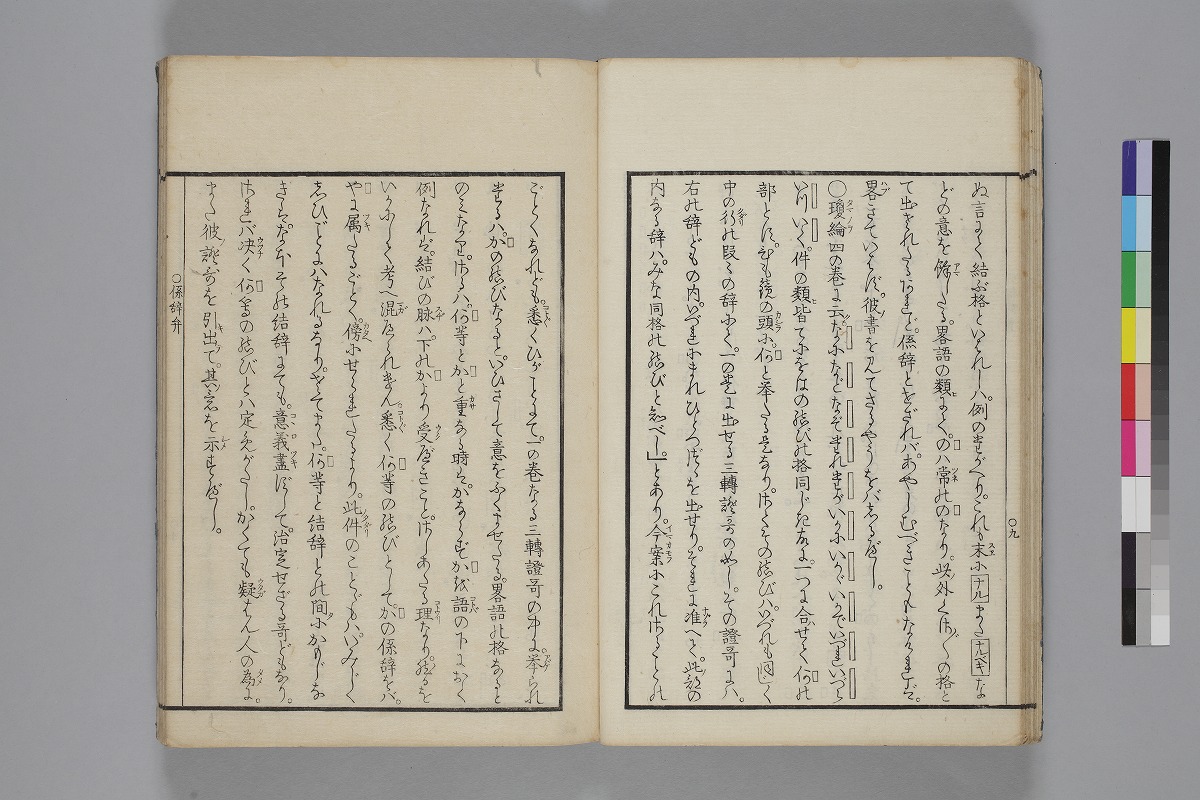 ぬ言にて結ぶ格といはれしハ例のまがへりこれも末にナルまたナルベキな
どの意を餘したる畧語の類にてのハ常ののなり此外くさ〴〵の格と
て出されたるあれど係辞とせざれバあやしむべきこともなけれど
畧きていはず彼書を見てさるやうをバしるべし
〇瓊綸四の巻に云なになどなぞたれたがいかにいかゞいかでいづれいづら
いついく件の類皆てにをはの結びの格同じき故に一つに合せて何の
部とすも鏡の頭に何と挙たる是なりさてその結びハいづれも同く
中の行の段々の辞にて一の巻に出せる三轉證哥のめしその證哥にハ
右の辞どもの内いづれにまれひとつづゝを出せりそれに准へて此部の
内なる辞ハみな同格の結びと知べし」とあり今案にこれらことの
〇九
ごとくなれども悉くひがことにて一の巻なる三轉證哥の中に挙られ
たるハかの結びなるといひさして意をふくませたる畧語の格なると
のミなりさるハ何等とかと重なる時ハかならずかは語の下におく
例なれば結びの脉ハ下のかより受べきことさしあたる理なりそれを
いかにして考へ混へられけん悉く何等の結びとしてかの係辞をバ
やに属たるごとく傍にせられたるなり此件のことどもハいみじく
しひごとハなれるなりさてまた何等と結辞との間にかもじな
きハなほその結辞にても意義盡ずして治定せざる哥どもなり
されバ决く何等の結びとハ定めがたしかくても疑はん人の為に
また彼證哥を引出て其意を示すべし
〇係辞弁